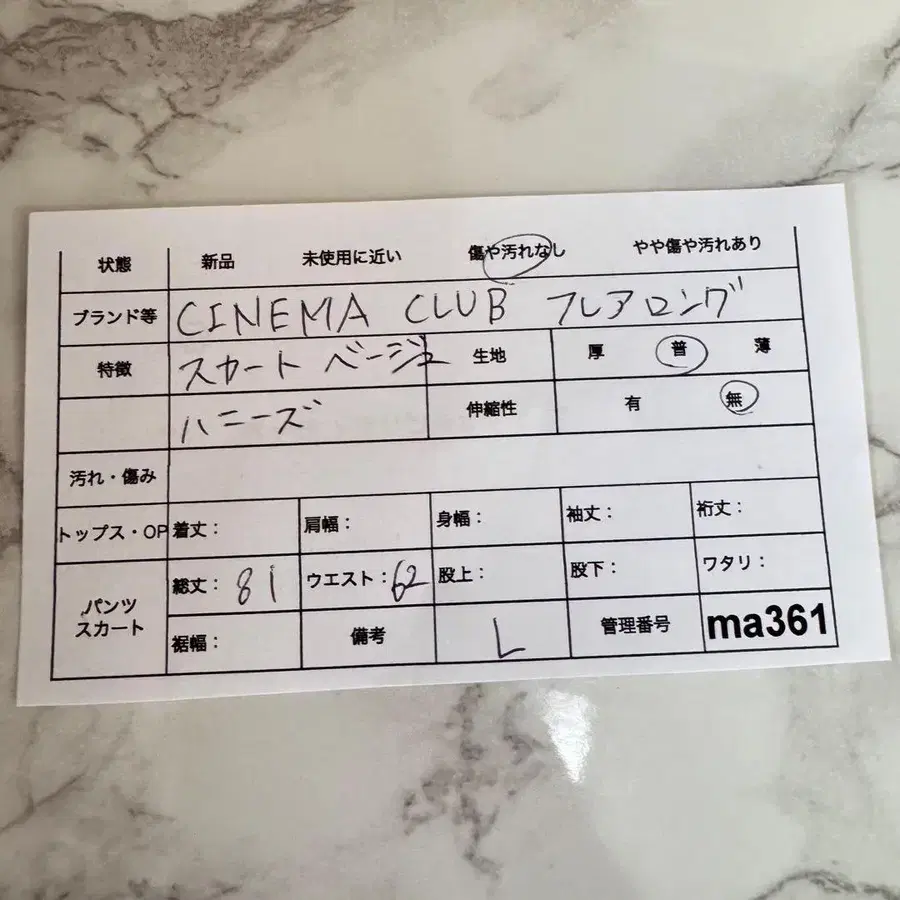 状態 新品 未使用に近い 傷や汚れなし やや傷や汚れあり
ブランド等 CINEMA CLUB フレアロング
特徴 スカート ベージュ 生地 厚 普 薄
ハニーズ 伸縮性 有 無
汚れ・傷み
トップス・OP 着丈: 肩幅: 身幅: 袖丈: 裄丈:
パンツ スカート 総丈: 81 ウエスト: 62 股上: 股下: ワタリ:
裾幅: 備考 L 管理番号 ma361